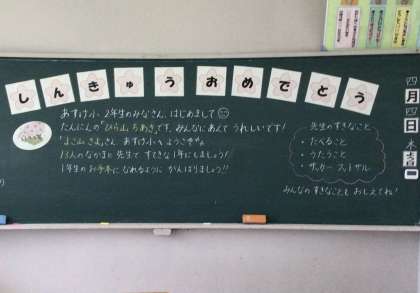 しんきゅうおめでとう
四月四日 木
あすけ小 2年生のみなさん、はじめまして
たんにんの「ひら山 ちあき」です。みんなにあえて うれしいです!
さん、あすけ小へ ようこそ
13人のなかまと 先生で すてきな1年にしましょう!
1年生の お手本に なれるように がんばりましょう!!
先生のすきなこと
・たべること
・うたうこと
・サッカー フットサル
みんなの すきなことも おしえてね!